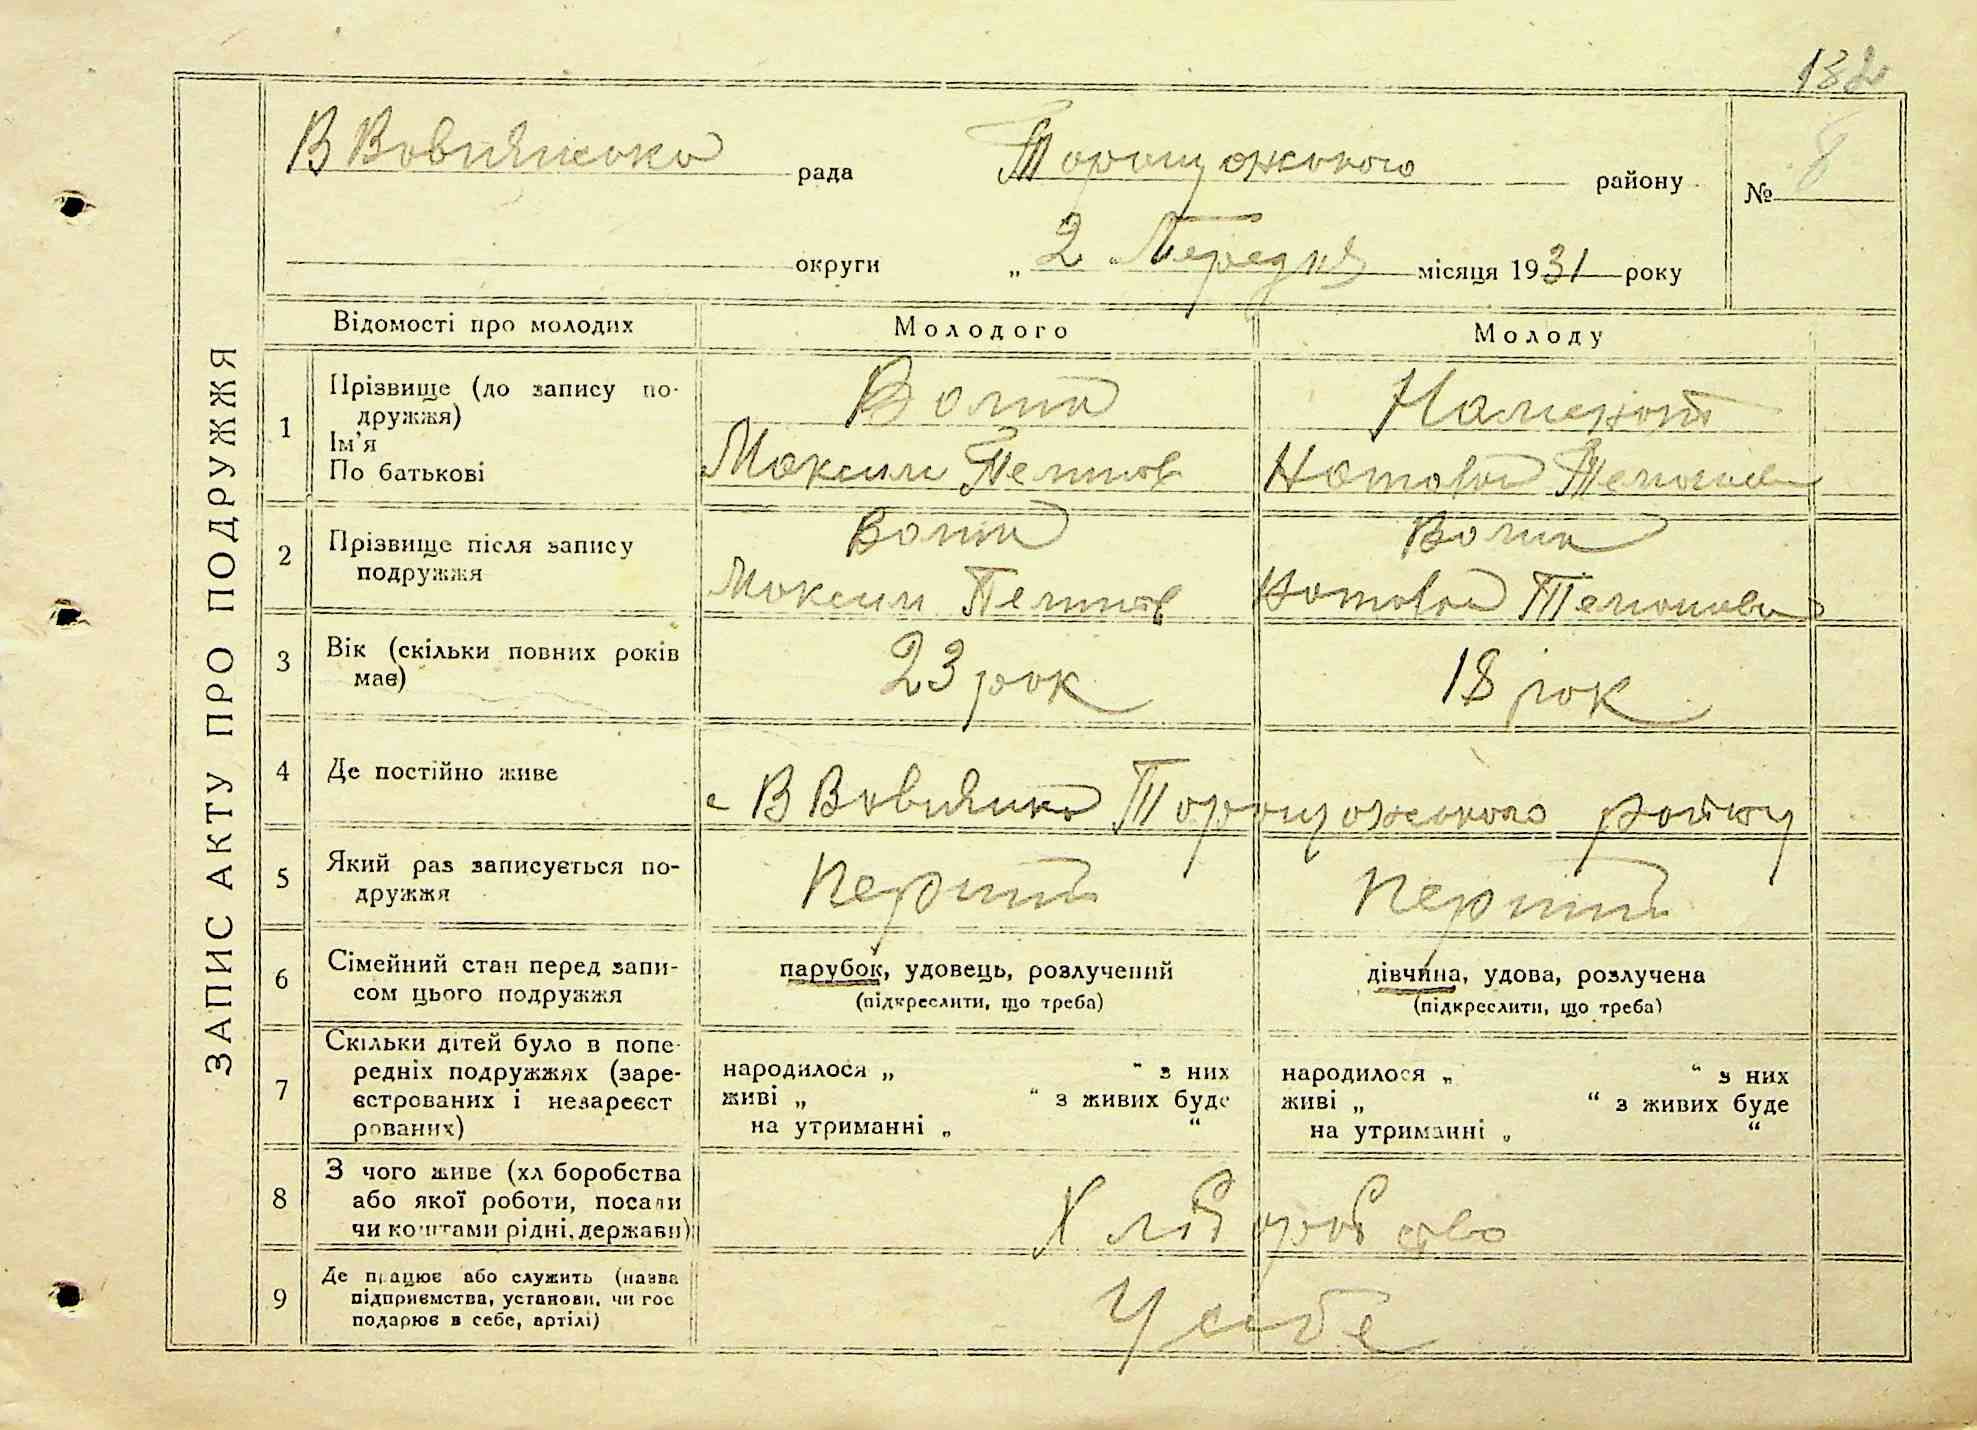 132
В Вовнянська рада Таращанського району № 8
округи „ 2 " Березня місяця 1931 року
ЗАПИС АКТУ ПРО ПОДРУЖЖЯ
Відомості про молодих Молодого Молоду
1 Прізвище (до запису по-
дружжя)
Ім'я
По батькові
Максим
2 Прізвище після запису
подружжя
Максим
3 Вік (скільки повних років
має)
23 рок 18 рок
4 Де постійно живе
с В Вовнянка Таращанського району
5 Який раз записується по-
дружжя
Перший Перший
6 Сімейний стан перед запи-
сом цього подружжя
парубок, удовець, розлучений дівчина, удова, розлучена
(підкреслити, що треба) (підкреслити, що треба)
7 Скільки дітей було в попе-
редніх подружжях (заре-
єстрованих і незареєст
рованих)
народилося „ “ з них народилося „ “ з них
живі „ “ з живих буде живі „ “ з живих буде
на утриманні „ “ на утриманні „ “
8 З чого живе (хл боробства
або якої роботи, посади
чи коштами рідні, держави)
Хліборобство
9 Де працює або служить (назва
підприємства, установи, чи гос
подарює в себе, артілі)
У себе